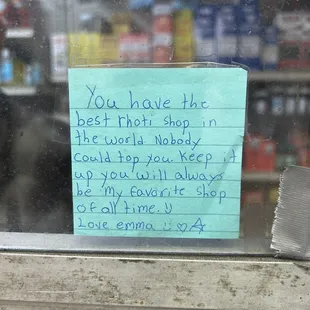 You have the
best rhoti shop in
the world Nobody
could top you Keep it
up you will always
be my favorite shop
of all time. U
Love emma :) ♡☆